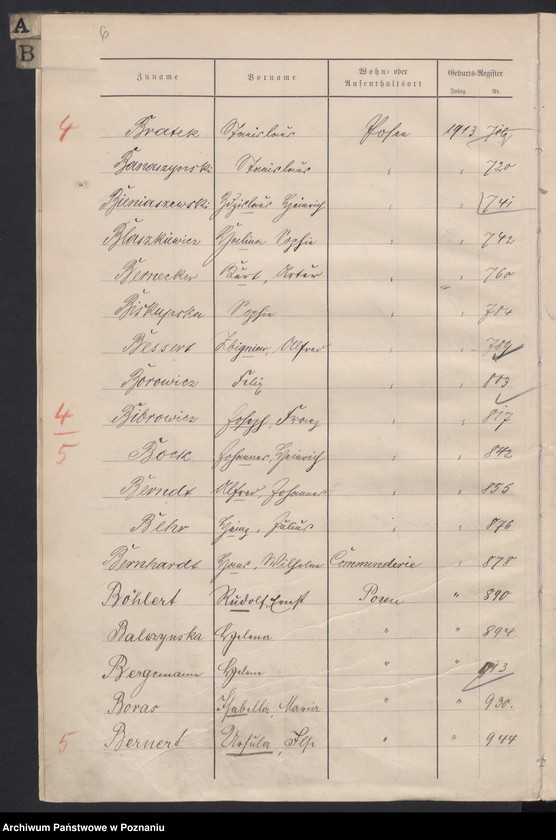 6
A
B
Zuname Vorname Wohn- oder Aufenthaltsort Geburts-Register
Jahrg. Nr.
4 Bratek Stanislaus Posen 1913
Banaszynski Stanislaus " " 720
Bieniaszewski Zdzislaus Heinrich " " 741
Blaszkiewicz Halina Sophie " " 742
Bernecker Kurt, Artur " " 760
Biskupska Sophie " " 784
Bessert Zbigniew, Alfred " " 789
Borowicz Felix " 813
4 Bibrowicz Joseph, Franz " " 817
5 Bock Johannes, Heinrich " " 842
Berndt Alfred, Johannes " " 855
Behr Heinz, Julius " " 876
Bernhardt Hans, Wilhelm Commenderie " 878
Böhlert Rudolf, Ernst Posen " 890
Balczynska Helena " " 894
Bergemann Helene " " 913
Boras Isabella, Maria " " 930.
5 Bernert Ursula, Ilse " " 944
Archiwum Państwowe w Poznaniu